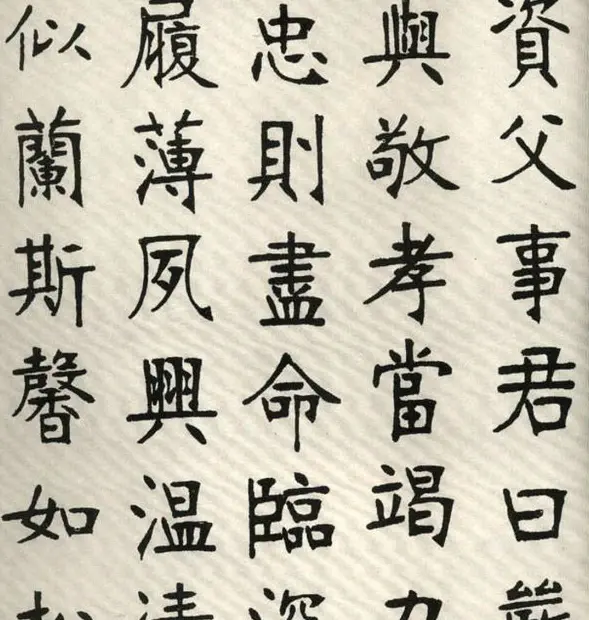 資父事君曰嚴
與敬孝當竭力
忠則盡命臨深
履薄夙興温凊
似蘭斯馨如松